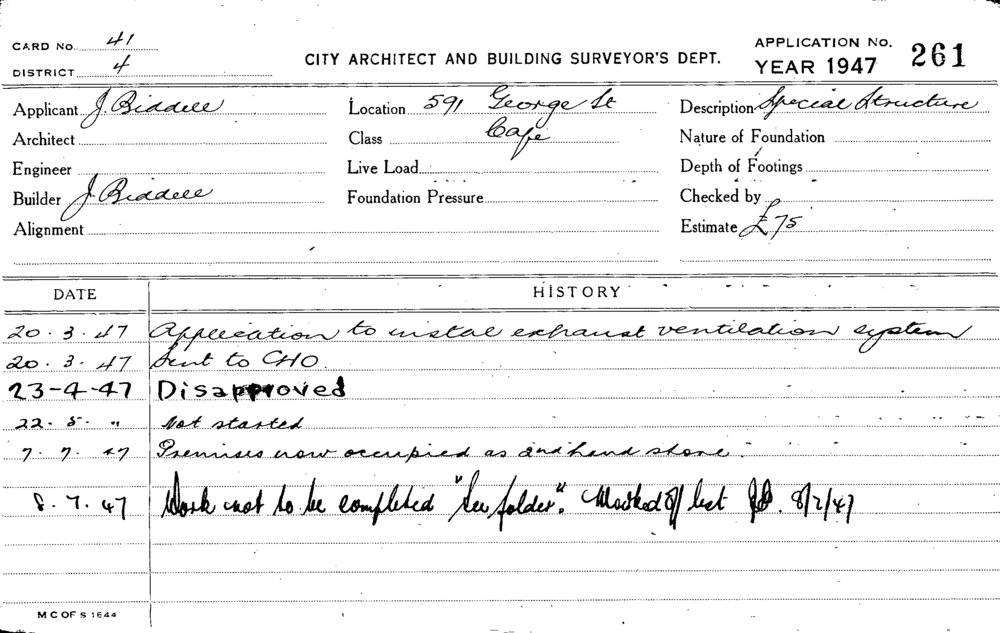 CARD No. 41
DISTRICT 4
CITY ARCHITECT AND BUILDING SURVEYOR'S DEPT.
APPLICATION No. 261
YEAR 1947
Applicant J. Riddell Location 591 George St Description Special Structure
Architect Class Cafe Nature of Foundation
Engineer Live Load Depth of Footings
Builder J. Riddell Foundation Pressure Checked by
Alignment Estimate £75
DATE HISTORY
20.3.47 Application to instal exhaust ventilation system
20.3.47 Sent to CHO.
23-4-47 Disapproved
22.5. " Not started
7.7.47 Premises now occupied as 2nd hand store.
8.7.47 Work not to be completed "See folder". Marked off list 8/7/47
M C OF S 1644